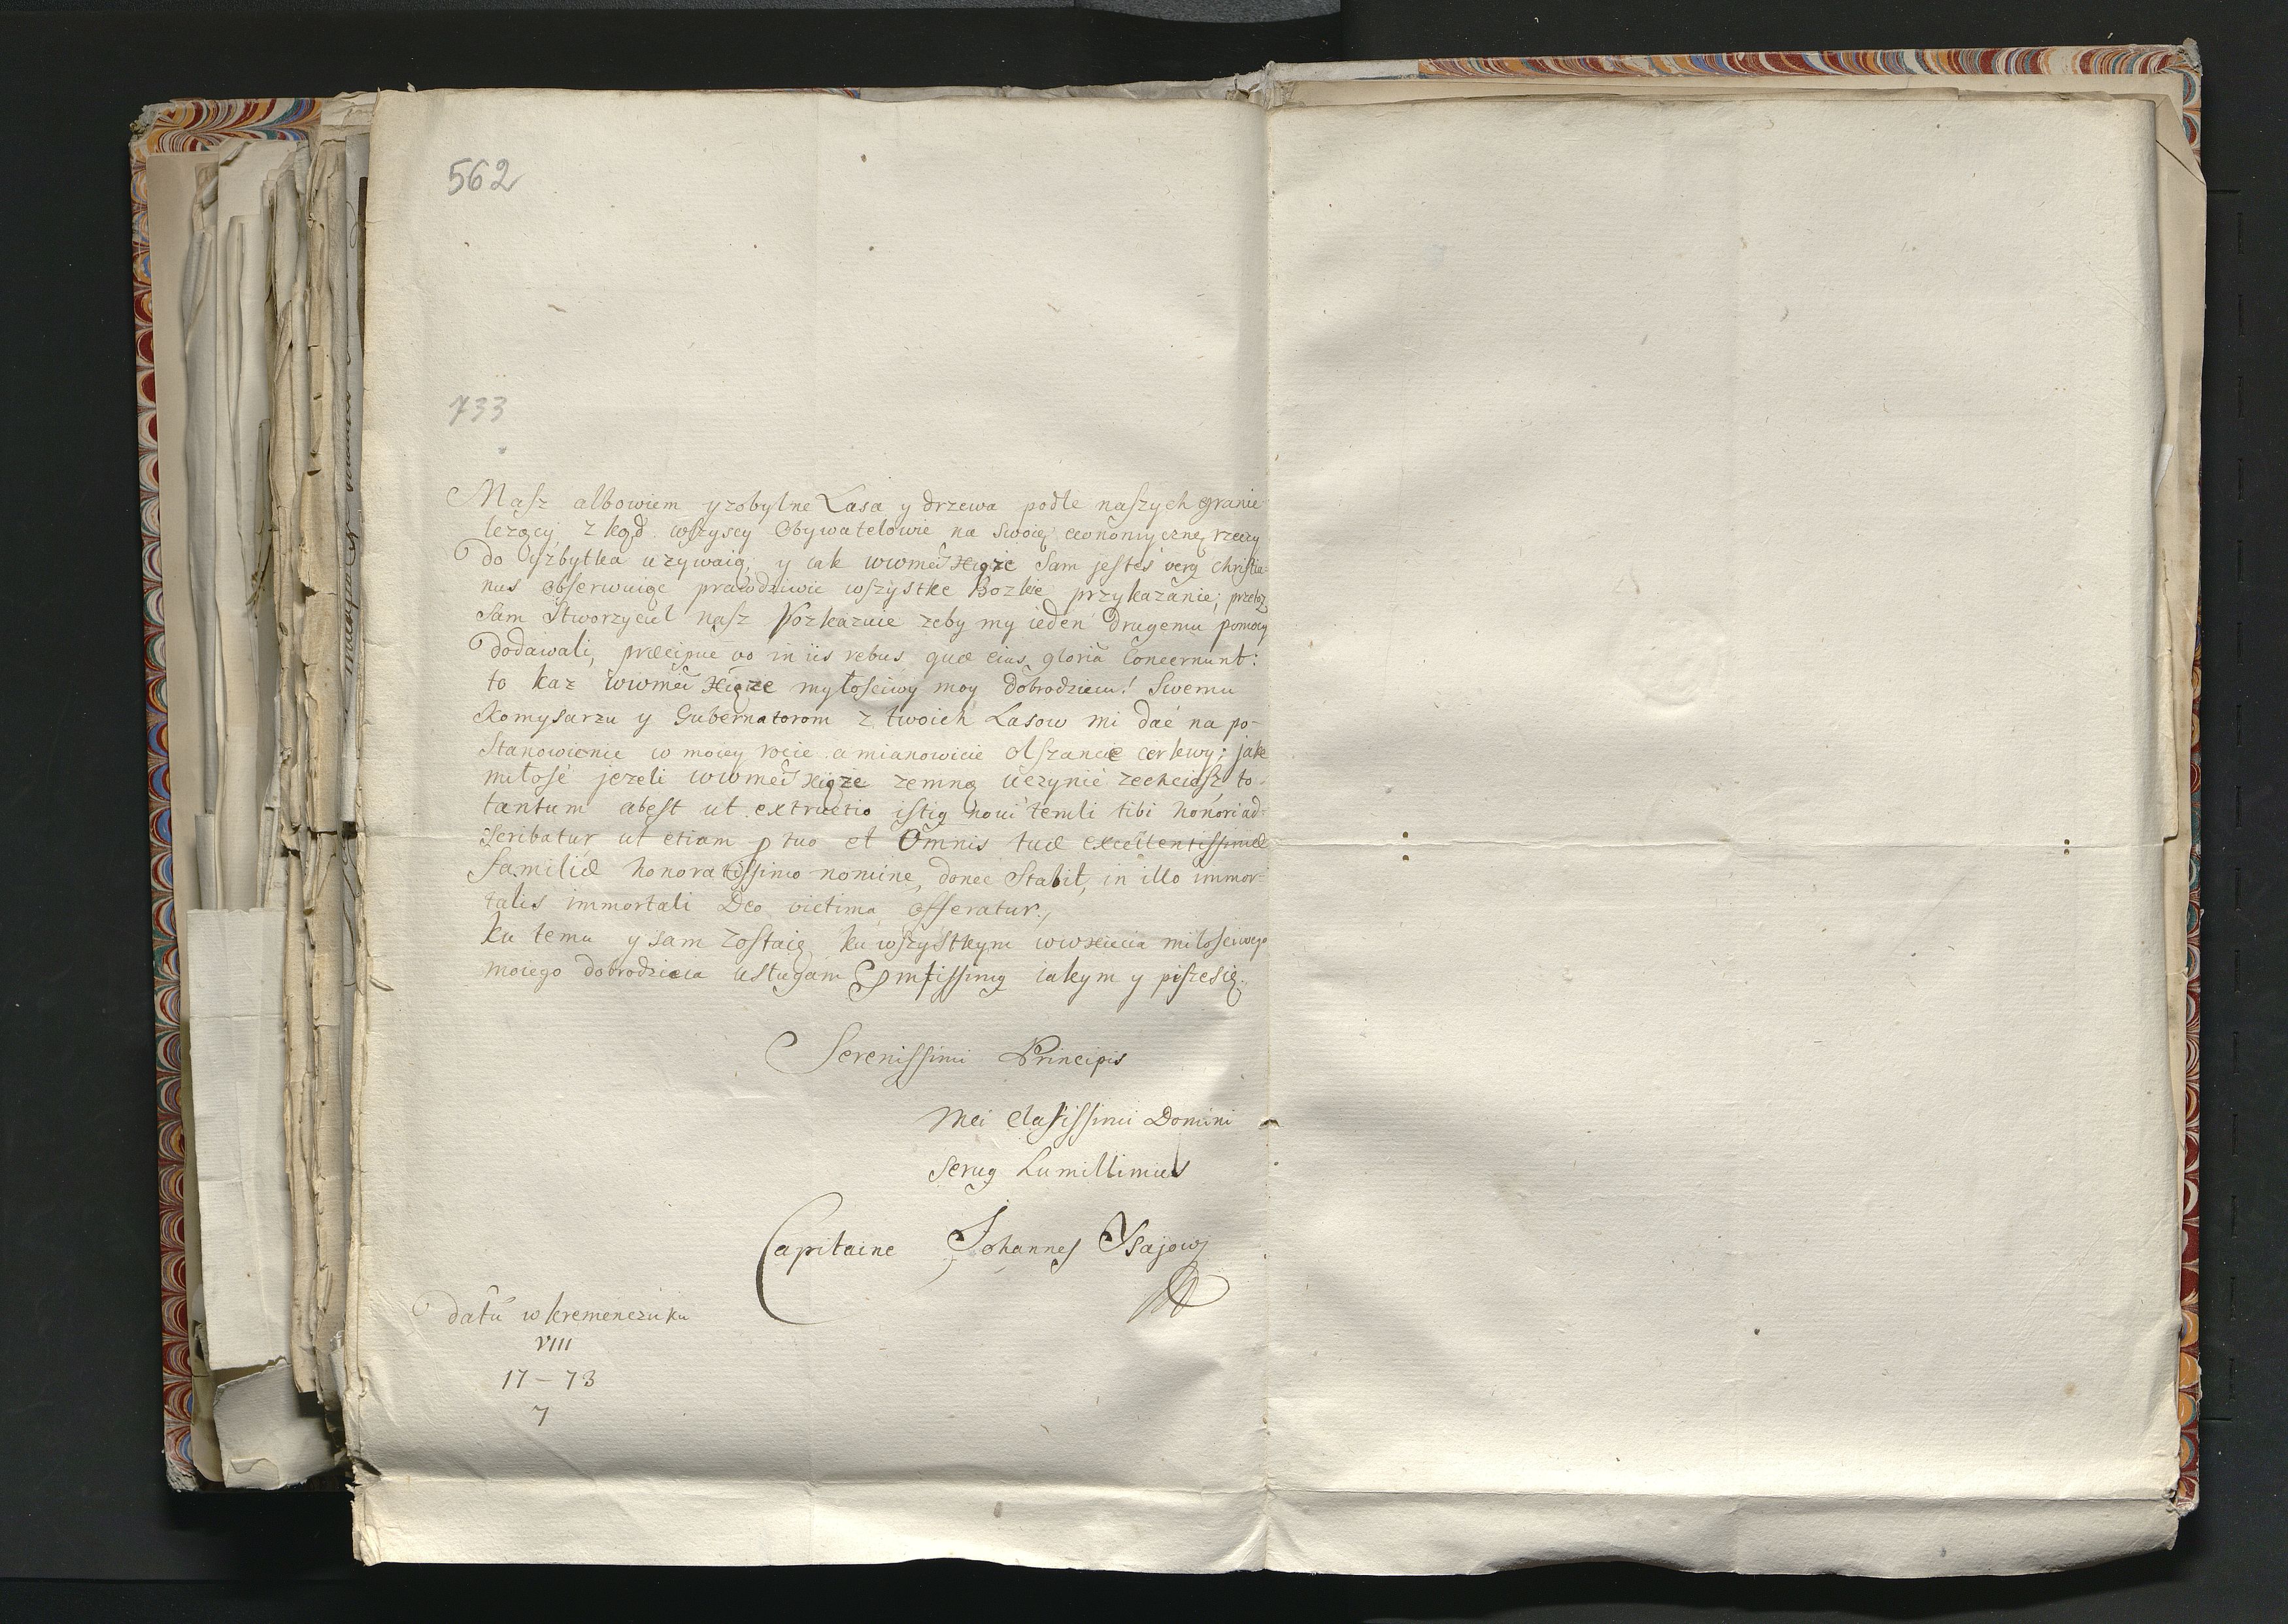 562
733
Masz albowiem yzobylne Lasa y drzewa podle naszych granic
lezący, z kąd wszyscy Obywatelowie na swoię œconomycznę rzeczy
do Uzbytka uzywaią; y iak wwmci Xiąże Sam jesteś verq Christia-
nus obserwuiąc prawdziwie wszystke Bozkie przykazanie; przetoz
Sam Stworzyciel nasz Rozkazuie zeby my ieden drugemu pomocy
dodawali, præcipue vo in iis rebus quæ eius gloriã Concernunt:
to kaz wwmci Xiąże myłosciwy moy dobrodzieiu! Swemu
Komysarzu y Gubernatorom z twoich Lasow mi dać na po-
stanowienie w moiey rocie a mianowicie Olszance cerkwy; jake
miłość jezeli wwmci Xiąże zemną uczynić zechciesz to-
tantum abest ut extructio istiq novi temli tibi honori ad-
scribatur ut etiam p tuo et Omnis tuæ excellentissimæ
familiæ honoratissimo nomine, donec Stabit, in illo immor-
talis immortali Deo victima offeratur.,
Ku temu y sam zostaię ku wszystkym wwXiecia miłosciwego
moiego dobrodzieia usługam pmtissimq iakym y piszesię.
Serenissimi Principis
Mei Clatissimi Domini
Seruq humillimus
Capitaine Johannes Ysajow
datũ w kremenczuku
VIII
17 – 73
7